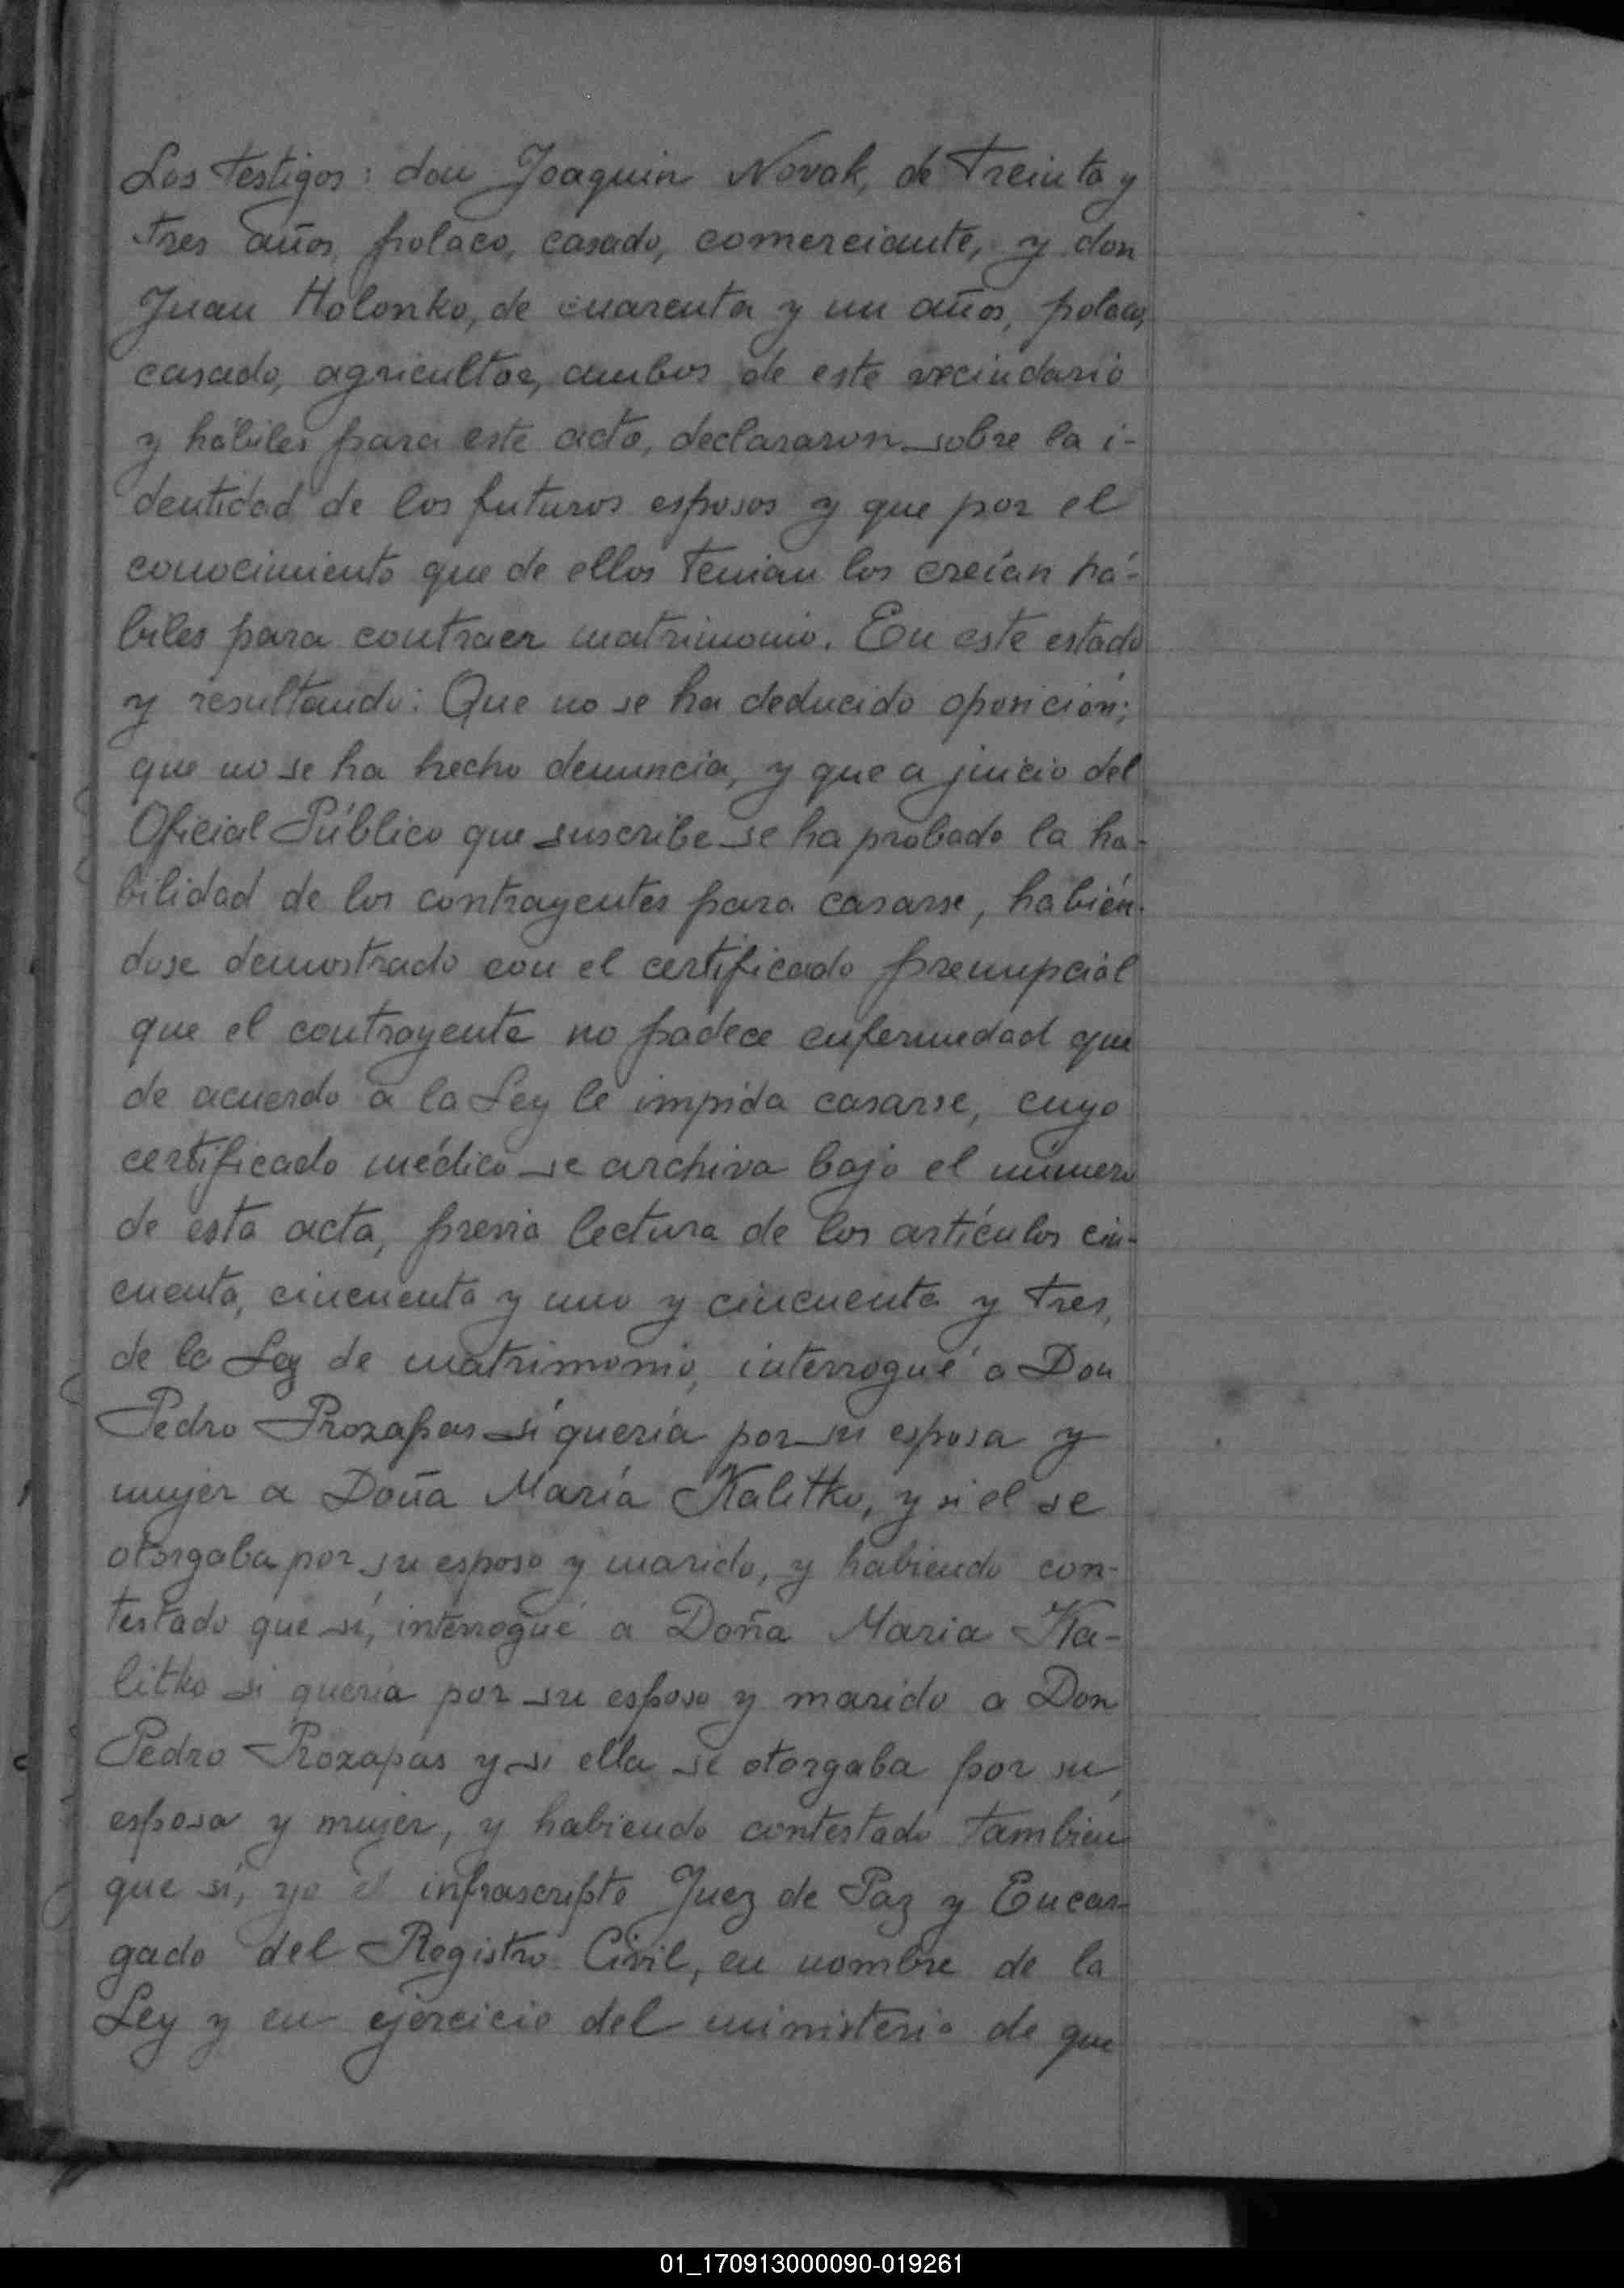 Los testigos: don Joaquin Novak, de treinta y
tres años, polaco, casado, comerciante, y don
Juan Holonko, de cuarenta y un años, polaco,
casado, agricultor, ambos de este vecindario
y hábiles para este acto, declararon sobre la i-
dentidad de los futuros esposos y que por el
conocimiento que de ellos tenian los creían há-
biles para contraer matrimonio. En este estado
y resultando: Que no se ha deducido oposición;
que no se ha hecho denuncia, y que a juicio del
Oficial Público que suscribe se ha probado la ha-
bilidad de los contrayentes para casarse, habién-
dose demostrado con el certificado prenupcial
que el contrayente no padece enfermedad que
de acuerdo a la Ley le impida casarse, cuyo
certificado médico se archiva bajo el número
de esta acta, previa lectura de los artículos cin-
cuenta, cincuenta y uno y cincuenta y tres,
de la Ley de matrimonio, interrogué a Don
Pedro Prozapas si quería por su esposa y
mujer a Doña María Kalitko, y si el se
otorgaba por su esposo y marido, y habiendo con-
testado que sí, interrogué a Doña Maria Ka-
litko si quería por su esposo y marido a Don
Pedro Prozapas y si ella se otorgaba por su
esposa y mujer, y habiendo contestado también
que sí, yo el infrascripto Juez de Paz y Encar-
gado del Registro Civil, en nombre de la
Ley y en ejercicio del ministerio de que
01_170913000090-019261